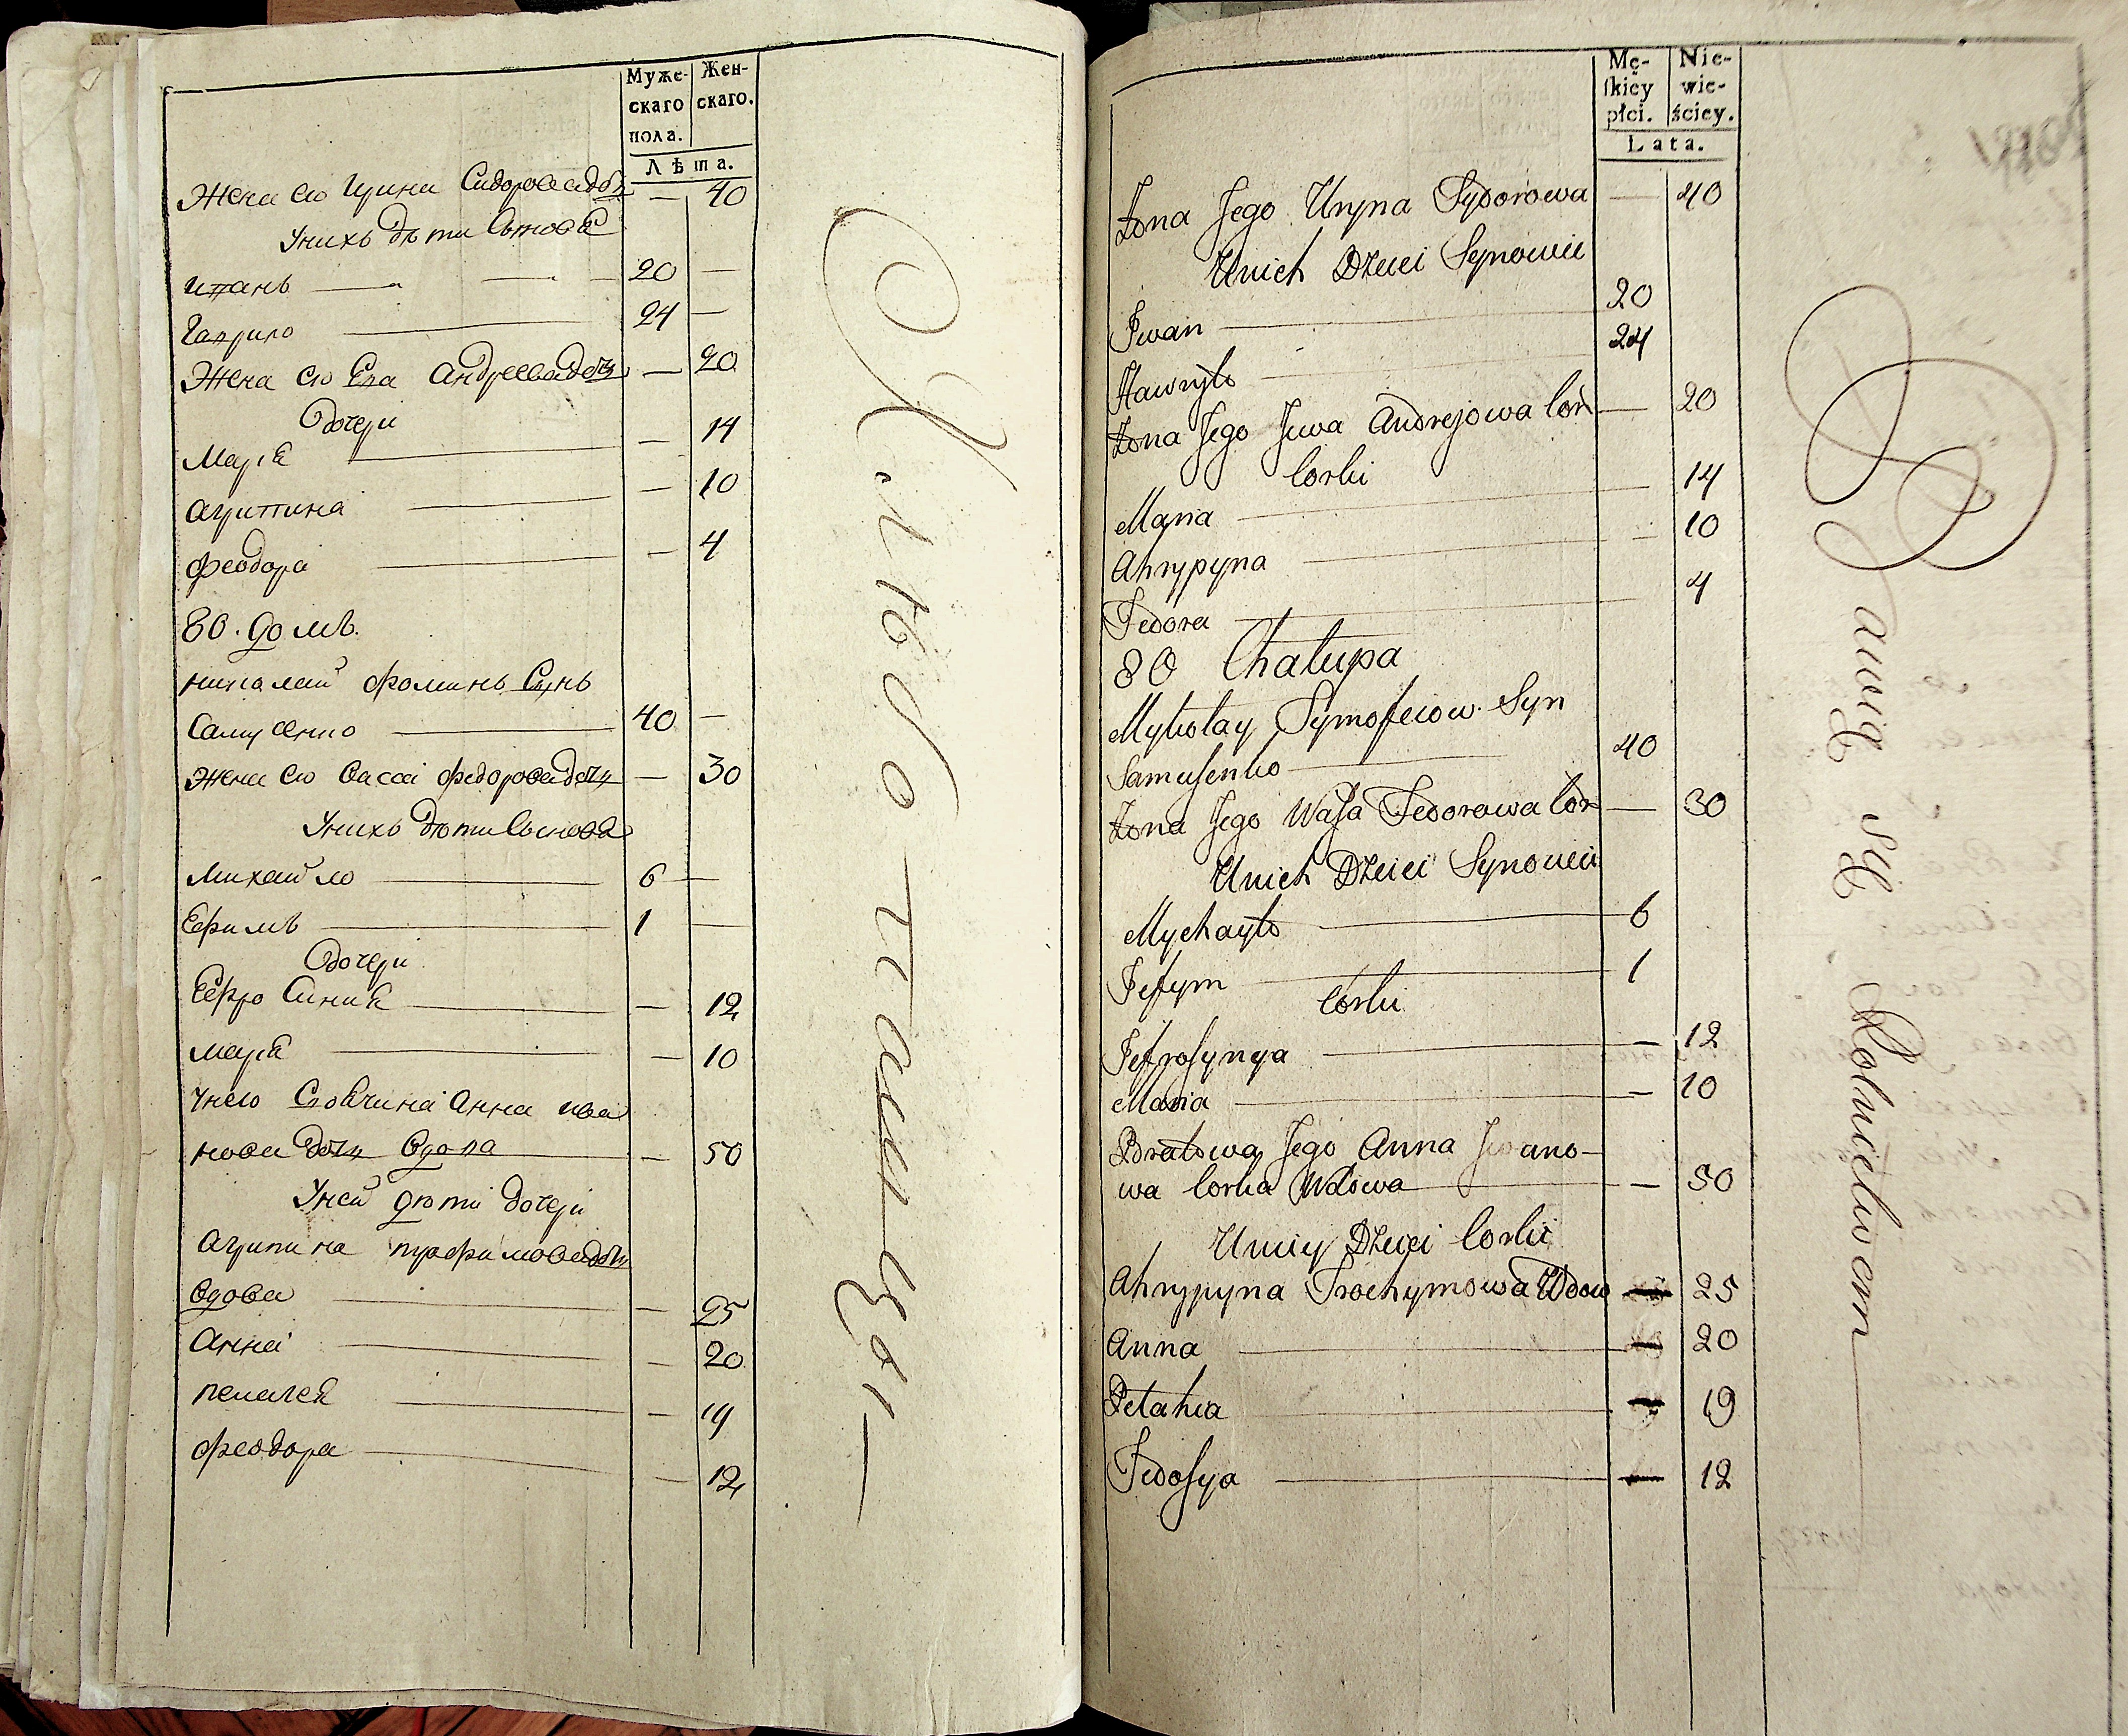 Муже-
скаго
пола.
Жен-
скаго.
Лѣта.
Жена его Ирина Сидоровадочь — 40
Унихъ дѣти Сыновѣ
Иванъ — 20 —
Гаврило — 24 —
Жена его Ева Андреевадочь — 20
Дочери
Марія — 14
Агрипина — 10
Феодора — 4
80. домъ.
Николай Фоминъ Сынъ
Самусенко — 40 —
Жена его Васса Федоровадочь — 30
Унихъ дѣти Сынова
Михайло — 6 —
Ефимъ — 1 —
Дочери
Ефросинія — 12
Марія — 10
Унего Анна Ива
нова дочь Вдова — 50
Уней дѣти дочери
Агрипина Трофимовадочь
Вдова — 25
Анна — 20
Пелагея — 19
Феодора — 12
Хлѣбопашцы —
Mę-
skiey
płci.
Nie-
wie-
ściey.
Lata.
Żona Jego Uryna Sydorowa — 40
Unich Dzieci Synowie
Iwan — 20
Hawryło — 24
Żona Jego Jewa Andrejowa Cor — 20
Corki
Maria — 14
Ahrypyna — 10
Fedora — 4
80 Chałupa
Mykołay Tymofeiow Syn
Samusenko — 40
Żona Jego Wassa Fedorowa Cor — 30
Unich Dzieci Synowie
Mychayło — 6
Jefym — 1
Corki
Jefrosynya — 12
Maria — 10
Bratowa Jego Anna Jwano-
wa Corka Wdowa — 50
Uniey Dzieci Corki
Ahrypyna Trochymowa Wdow — 25
Anna — 20
Pełahia — 19
Fedosya — 12
Bawią się Rolnictwem